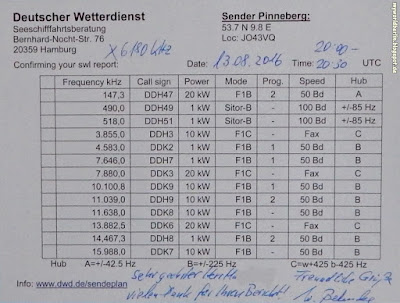 Deutscher Wetterdienst
Seeschifffahrtsberatung
Bernhard-Nocht-Str. 76
20359 Hamburg
Sender Pinneberg:
53.7 N 9.8 E
Loc: JO43VQ
X 6180 kHz
20:00 -
Confirming your swl report: Date: 13.08.2016 Time: 20:30 UTC
Frequency kHz Call sign Power Mode Prog. Speed Hub
147,3 DDH47 20 kW F1B 2 50 Bd A
490,0 DDH49 1 kW Sitor-B - 100 Bd +/-85 Hz
518,0 DDH51 1 kW Sitor-B - 100 Bd +/-85 Hz
3.855,0 DDH3 10 kW F1C - Fax C
4.583,0 DDK2 1 kW F1B 1 50 Bd B
7.646,0 DDH7 1 kW F1B 1 50 Bd B
7.880,0 DDK3 20 kW F1C - Fax C
10.100,8 DDK9 10 kW F1B 1 50 Bd B
11.039,0 DDH9 10 kW F1B 2 50 Bd B
11.638,0 DDK8 10 kW F1B 50 Bd B
13.882,5 DDK6 20 kW F1C - Fax C
14.467,3 DDH8 1 kW F1B 2 50 Bd B
15.988,0 DDK7 10 kW F1B 50 Bd B
Hub A=+/-42.5 Hz B=+/-225 Hz C=w+425 b-425Hz
Sehr geehrter
Freundliche Grüße
vielen Dank für Ihren Bericht!
Info: www.dwd.de/sendeplan